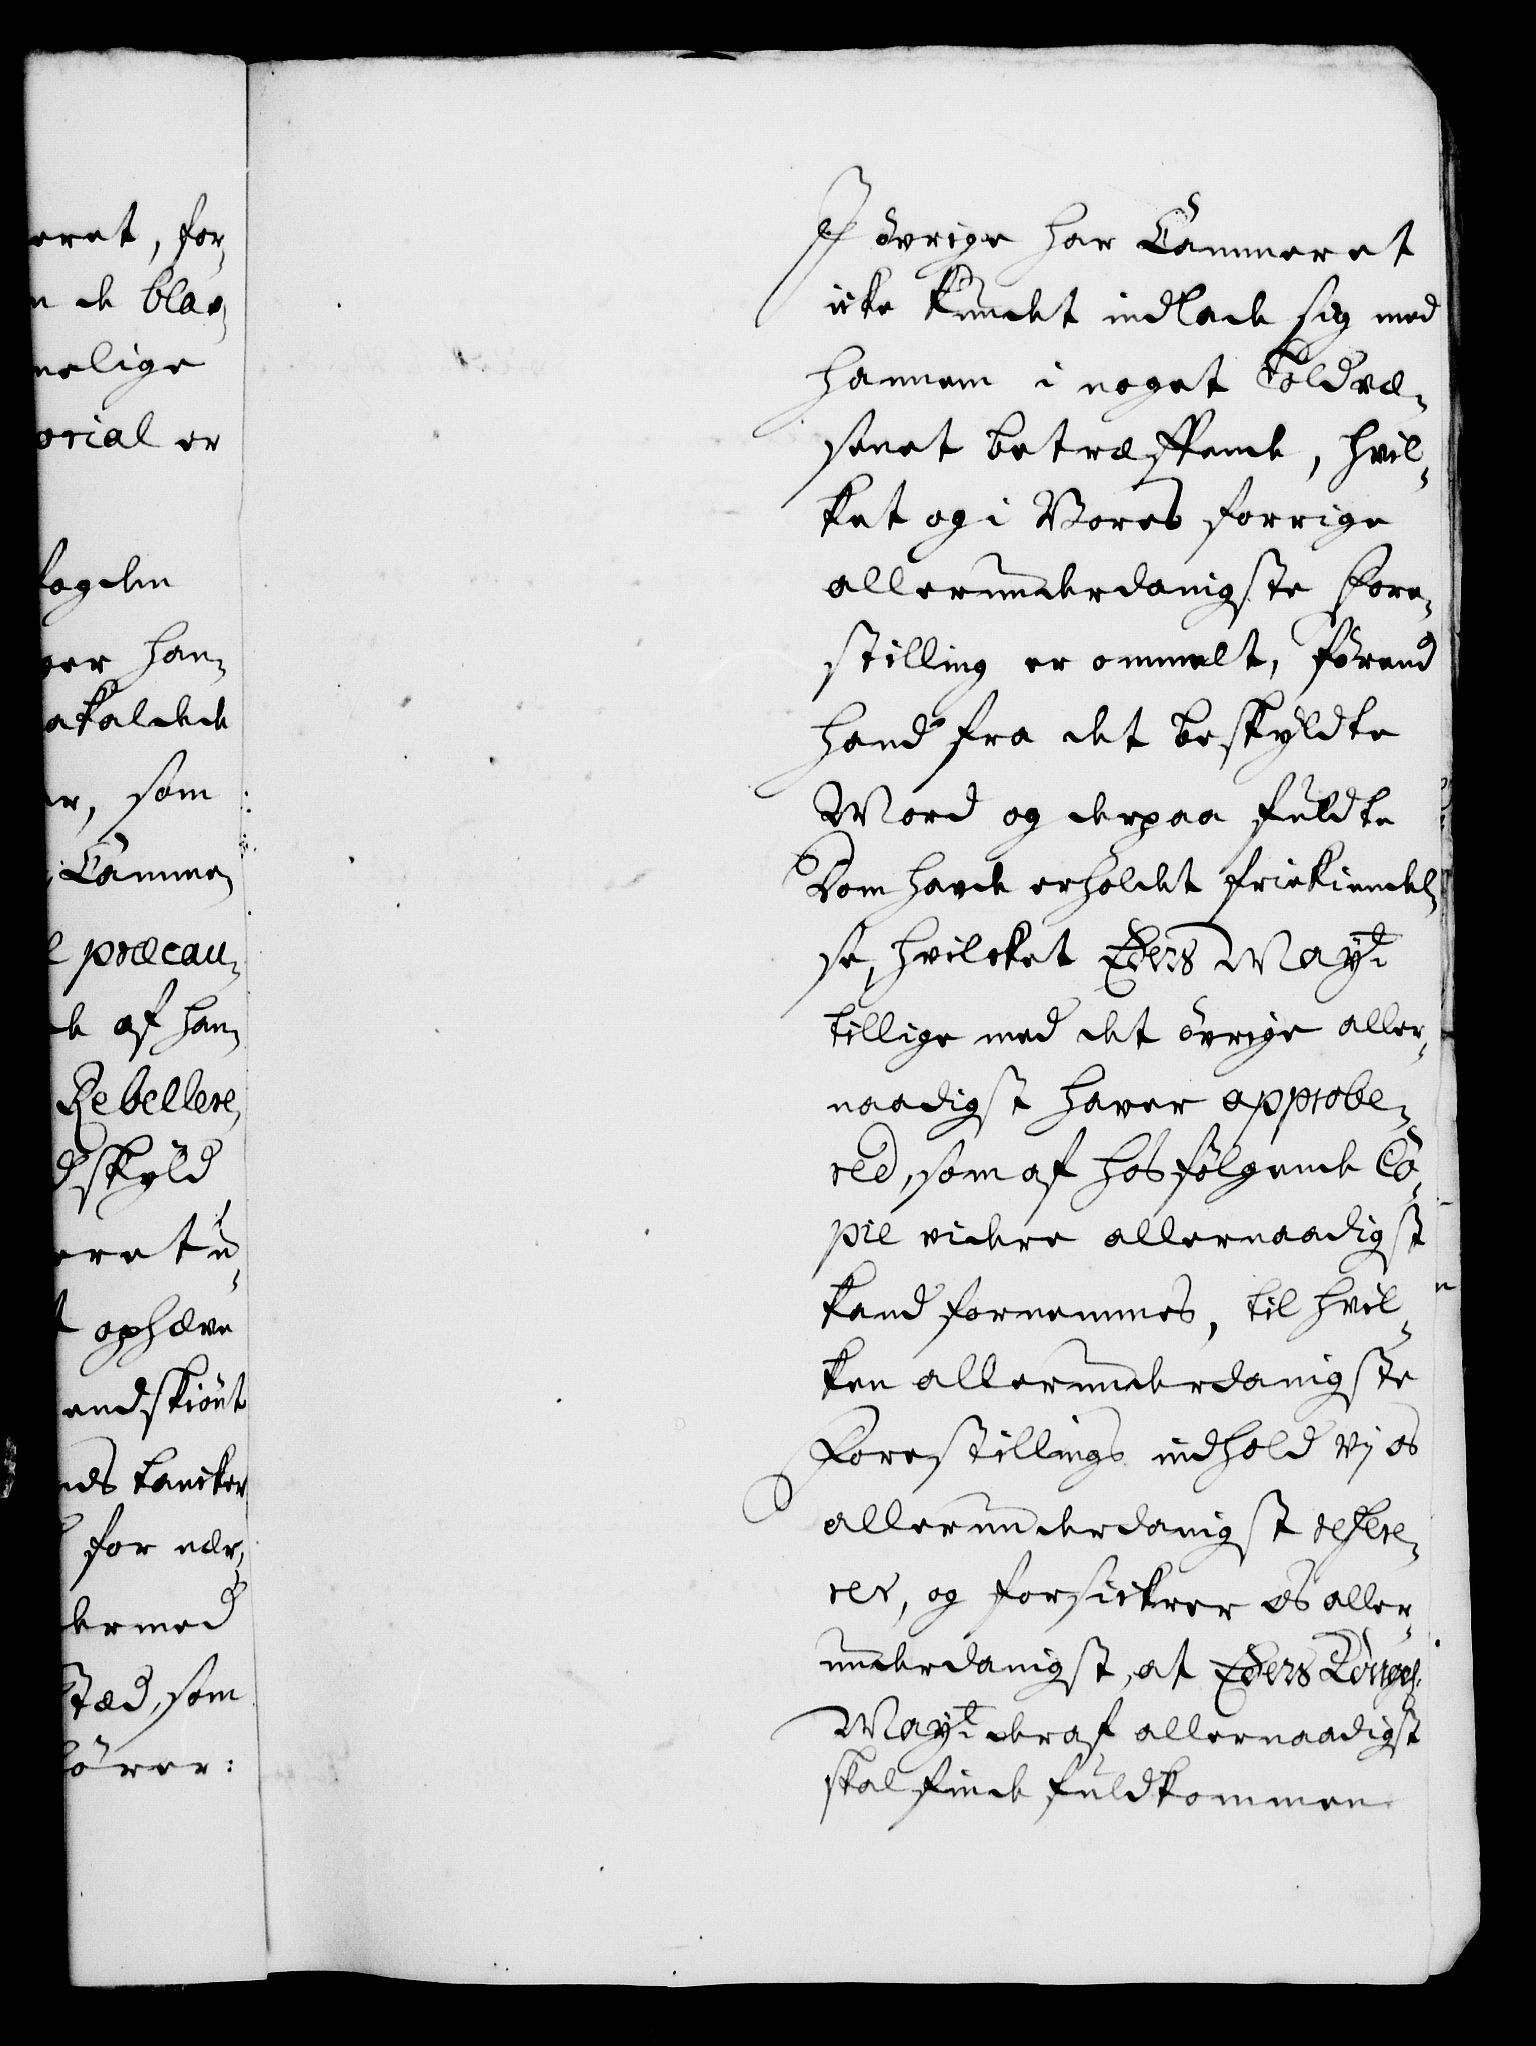 eret, for-
n de blae-
melige
orial er
fogden
er han-
akaldede
er, som
i Cammer-
l præcau-
de af han-
Rebellere,
dskyld
eret u-
t ophæve
endskiönt
nds tancker
for nær-
dermed
stæd, som
förer:
I övrige har Cammeret
icke kundet indlade sig med
hannem i noget Toldvæ-
senet betræffende, hvil-
ket og i Vores forrige
allerunderdanigste Fore-
stilling er ommelt, förend
hand fra det beskyldte
Mord og derpaa fuldte
Dom havde erholdet friekiendel-
se, hvilcket Eders Mayt
tillige med det övrige aller-
naadigst haver approbe-
red, som af hosfölgende Co-
pie videre allernaadigst
kand fornemmes, til hvil-
ken allerunderdanigste
Forestillings indhold vj os
allerunderdanigst refere-
rer, og forsickrer os aller-
underdanigst, at Eders Kongel.
Mayt deraf allernaadigst
skal finde fuldkommen